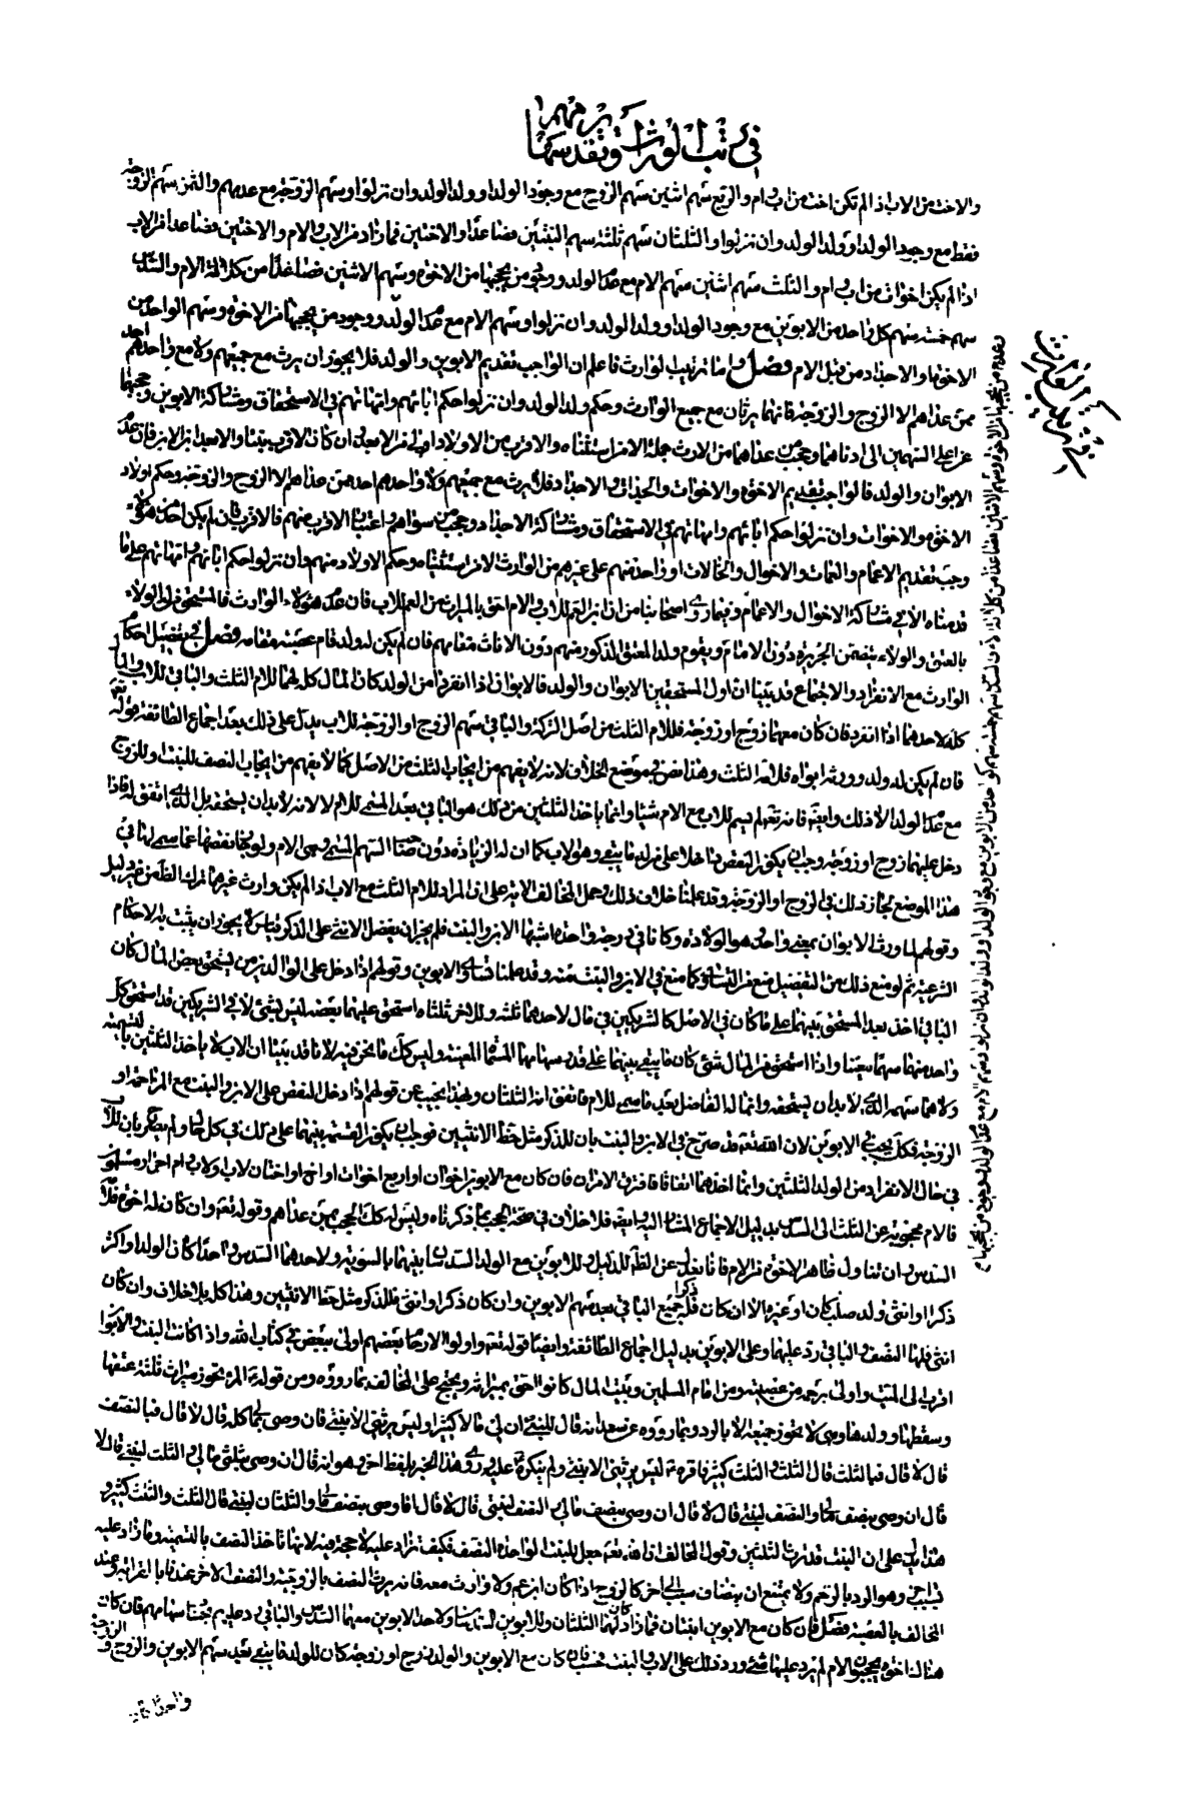 في ترتيب الوراث وتقديرسهما
والاخت من الاب اذا لم تكن اخت من اب وام والربع سهم اثنين سهم الزوج مع وجود الولد او ولد الولد وان نزلوا وسهم الزوجة مع عدمهم والثمن سهم الزوجة
فقط مع وجود الولد او ولد الولد وان نزلوا والثلثان سهم ثلثة سهم البنتين فصاعدا والاختين فما زاد من الاب والام والاختين فصاعدا من الاب
اذا لم يكن اخوات من اب وام والثلث سهم اثنين سهم الام مع عدم الولد ووجود من يحجبها من الاخوة وسهم الاثنين فصاعدا من كلالة الام والسدس
سهم خمسة سهم كل واحد من الابوين مع وجود الولد او ولد الولد وان نزلوا وسهم الام مع عدم الولد ووجود من يحجبها من الاخوة وسهم الواحد من
الاخوة والاجداد من قبل الام فصل واما ترتيب الوارث فاعلم ان الواجب تقديم الابوين والولد فلا يجوز ان يرث مع جميعهم ولا مع واحدهم احد
ممن عداهم الا الزوج والزوجة فانهما يرثان مع جميع الوارث وحكم ولد الولد وان نزلوا حكم ابائهم وامهاتهم في الاستحقاق ومشاركة الابوين وحجبهما
عن اعلى السهمين الى ادناهما وحجب من عداهما من الارث جملة الا من استثناه والاقرب من الاولاد اولى من الابعد وان كان الاقرب بنتا والابعد ابن ابن فان عدم
الابوان والولد فالواجب تقديم الاخوة والاخوات والجدات والاجداد فلا يرث مع جميعهم ولا واحدهم احد ممن عداهم الا الزوج والزوجة وحكم اولاد
الاخوة والاخوات وان نزلوا حكم ابائهم وامهاتهم في الاستحقاق ومشاركة الاجداد وحجب من سواهم واعتبار الاقرب منهم فالاقرب فان لم يكن احد من هؤلاء
وجب تقديم الاعمام والعمات والاخوال والخالات او واحد منهم على غيرهم من الوارث الا من استثنيناه وحكم الاولاد منهم وان نزلوا حكم ابائهم وامهاتهم على ما
قدمناه الا في مشاركة الاخوال والاعمام وفيما رواه اصحابنا من ان ابن العم للاب والام احق بالميراث من العم للاب فان عدم هؤلاء الوارث فالمستحق ذو الولاء
بالعتق والولاء بتضمن الجريرة دون الامام ويقوم ولد المعتق الذكور منهم دون الاناث مقامهم فان لم يكن له ولد قام عصبته مقامه فصل في تفصيل احكام
الوارث مع الانفراد والاجتماع قد بينا ان اول المستحقين الابوان والولد فالابوان اذا انفردا من الولد كان المال كله لهما للام الثلث والباقي للاب والمال
كله لاحدهما اذا انفرد فان كان معهما زوج او زوجة فللام الثلث من اصل التركة والباقي بعد سهم الزوج او الزوجة للاب يدل على ذلك بعد اجماع الطائفة قوله
فان لم يكن له ولد وورثه ابواه فلامه الثلث وهذا نص في موضع الخلاف لانه لا يفهم من ايجاب الثلث من الاصل كما لا يفهم من ايجاب النصف للبنت وللزوج
مع عدم الولد الا ذلك وايضا فانه تعالى لم يسم للاب مع الام شيئا وانما ياخذ الثلثين من ذلك هو الباقي بعد المسمى للام لا لانه لابد ان يستحقه بل الذي اتفق له فاذا
دخل عليهما زوج او زوجة وجب ان يكون النقص داخلا على من له ما يبقى وهو الاب كما ان له الزيادة دون صاحب السهم المسمى وهي الام ولو جاز نقصها عما سمي لها في
هذا الموضع لجاز ذلك في الزوج او الزوجة وقد علمنا خلاف ذلك وحمل المخالف الاية على ان المراد للام الثلث مع الاب اذا لم يكن وارث غيرهما ترك الظاهر من غير دليل
وقولهم لما ورث الابوان بمعنى واحد هو الولادة وكانا في درجة واحدة اشبها الابن والبنت فلم يجز ان يفضل الانثى على الذكر قياس لا يجوز ان يثبت به الاحكام
الشرعية ثم لو منع ذلك من التفضيل منع من التساوي كما منع في الابن والبنت منه وقد علمنا تساوي الابوين وقولهم اذا دخل على الوالدين من يستحق بعض المال كان
الباقي اخذ بعد المستحق بينهما على ما كان في الاصل كالشريكين في مال لاحدهما ثلثه وللاخر ثلثاه استحق عليهما بعضه ليس بشيء لان الشريكين قد استحق كل
واحد منهما سهما معينا واذا استحق من المال شيء كان ما يبقى بينهما على قدر سهامهما المسماة المعينة وليس كذلك ما نحن فيه لانا قد بينا ان الاب لا ياخذ الثلثين بالتسمية
ولا هما سهمه الذي لابد ان يستحقه وانما له الفاضل بعد ما سمي للام فاتفق انه الثلثان وبهذا نجيب عن قولهم اذا دخل النقص على الابن والبنت مع المزاحمة او
الزوجة فكذلك يجب في الابوين لان الله تعالى قد صرح في الابن والبنت بان للذكر مثل حظ الانثيين فوجب ان يكون القسمة بينهما على ذلك في كل حال ولم يصرح بان للاب
في حال الانفراد من الولد الثلثين وانما اخذهما اتفاقا فافترق الامران فان كان مع الابوين اخوان او اربع اخوات او اخ واختان لاب او لاب وام احرار مسلمون
فالام محجوبة عن الثلث الى السدس بدليل الاجماع المشار اليه وايضا فلا خلاف في صحة الحجب بمن ذكرناه وليس كذلك الحجب بمن عداهم وقوله تعالى وان كان له اخوة فلامه
السدس وان تناول ظاهر الاخوة من الام فانا نعدل عن الظاهر للدليل وللابوين مع الولد السدسان بينهما بالسوية ولاحدهما السدس واحدا كان الولد او اكثر
ذكرا او انثى ولد صلب كان او غيره الا ان كان ذكرا فله جميع الباقي بعد سهم الابوين وان كان ذكرا وانثى فللذكر مثل حظ الانثيين وهذا كله بلا خلاف وان كان
انثى فلها النصف والباقي رد عليها وعلى الابوين بدليل اجماع الطائفة وايضا قوله تعالى واولوا الارحام بعضهم اولى ببعض في كتاب الله واذا كانت البنت والابوان
اقرب الى الميت واولى برحمه من عصبته ومن امام المسلمين وبيت المال كانوا احق بميراثه ويحتج على المخالف بما رووه ومن قوله المراة تحوز ميراث ثلثة عتيقها
ولقيطها وولدها وهي لا تحوز جميعه الا بالرد وبما رووه عن سعد انه قال للنبي ان لي مالا كثيرا وليس يرثني الا بنتي فاوصي بمالي كله قال لا قال فبالنصف
قال لا قال فبالثلث قال الثلث والثلث كثير فاقره ليس يرثني الا بنتي ولم ينكر عليه وروي هذا الخبر بلفظ اخر وهو انه قال ان اوصي بثلثي مالي والثلث لبنتي قال لا
قال ان اوصي بنصف مالي والنصف لبنتي قال لا قال ان اوصي بنصف مالي والنصف لبنتي قال لا قال افاوصي بنصف مالي والثلثان لبنتي قال الثلث والثلث كثير
هذا يدل على ان البنت قد ترث الثلثين وقول المخالف ان الله تعالى جعل للبنت الواحدة النصف فكيف تزاد عليه لا حجة فيه لانها تاخذ النصف بالتسمية وما زاد عليه
بسبب اخر وهو الرد بالرحم ولا يمتنع ان ينضاف سبب الى اخر كالزوج اذا كان ابن عم ولا وارث معه فانه يرث النصف بالزوجية والنصف الاخر عندنا بالقرابة وعند
المخالف بالعصبة فصل فان كان مع الابوين ابنتان فما زاد كان لهما الثلثان وللابوين السدسان ولاحد الابوين معهما السدس والباقي رد عليهم بحساب سهامهم فان كان
هناك اخوة يحجبون الام لم يرد عليها شيء ورد ذلك على الاب والبنت فحسب فان كان مع الابوين والولد زوج او زوجة كان للولد ما يبقى بعد سهم الابوين والزوج او الزوجة
في ترتيب الوارث